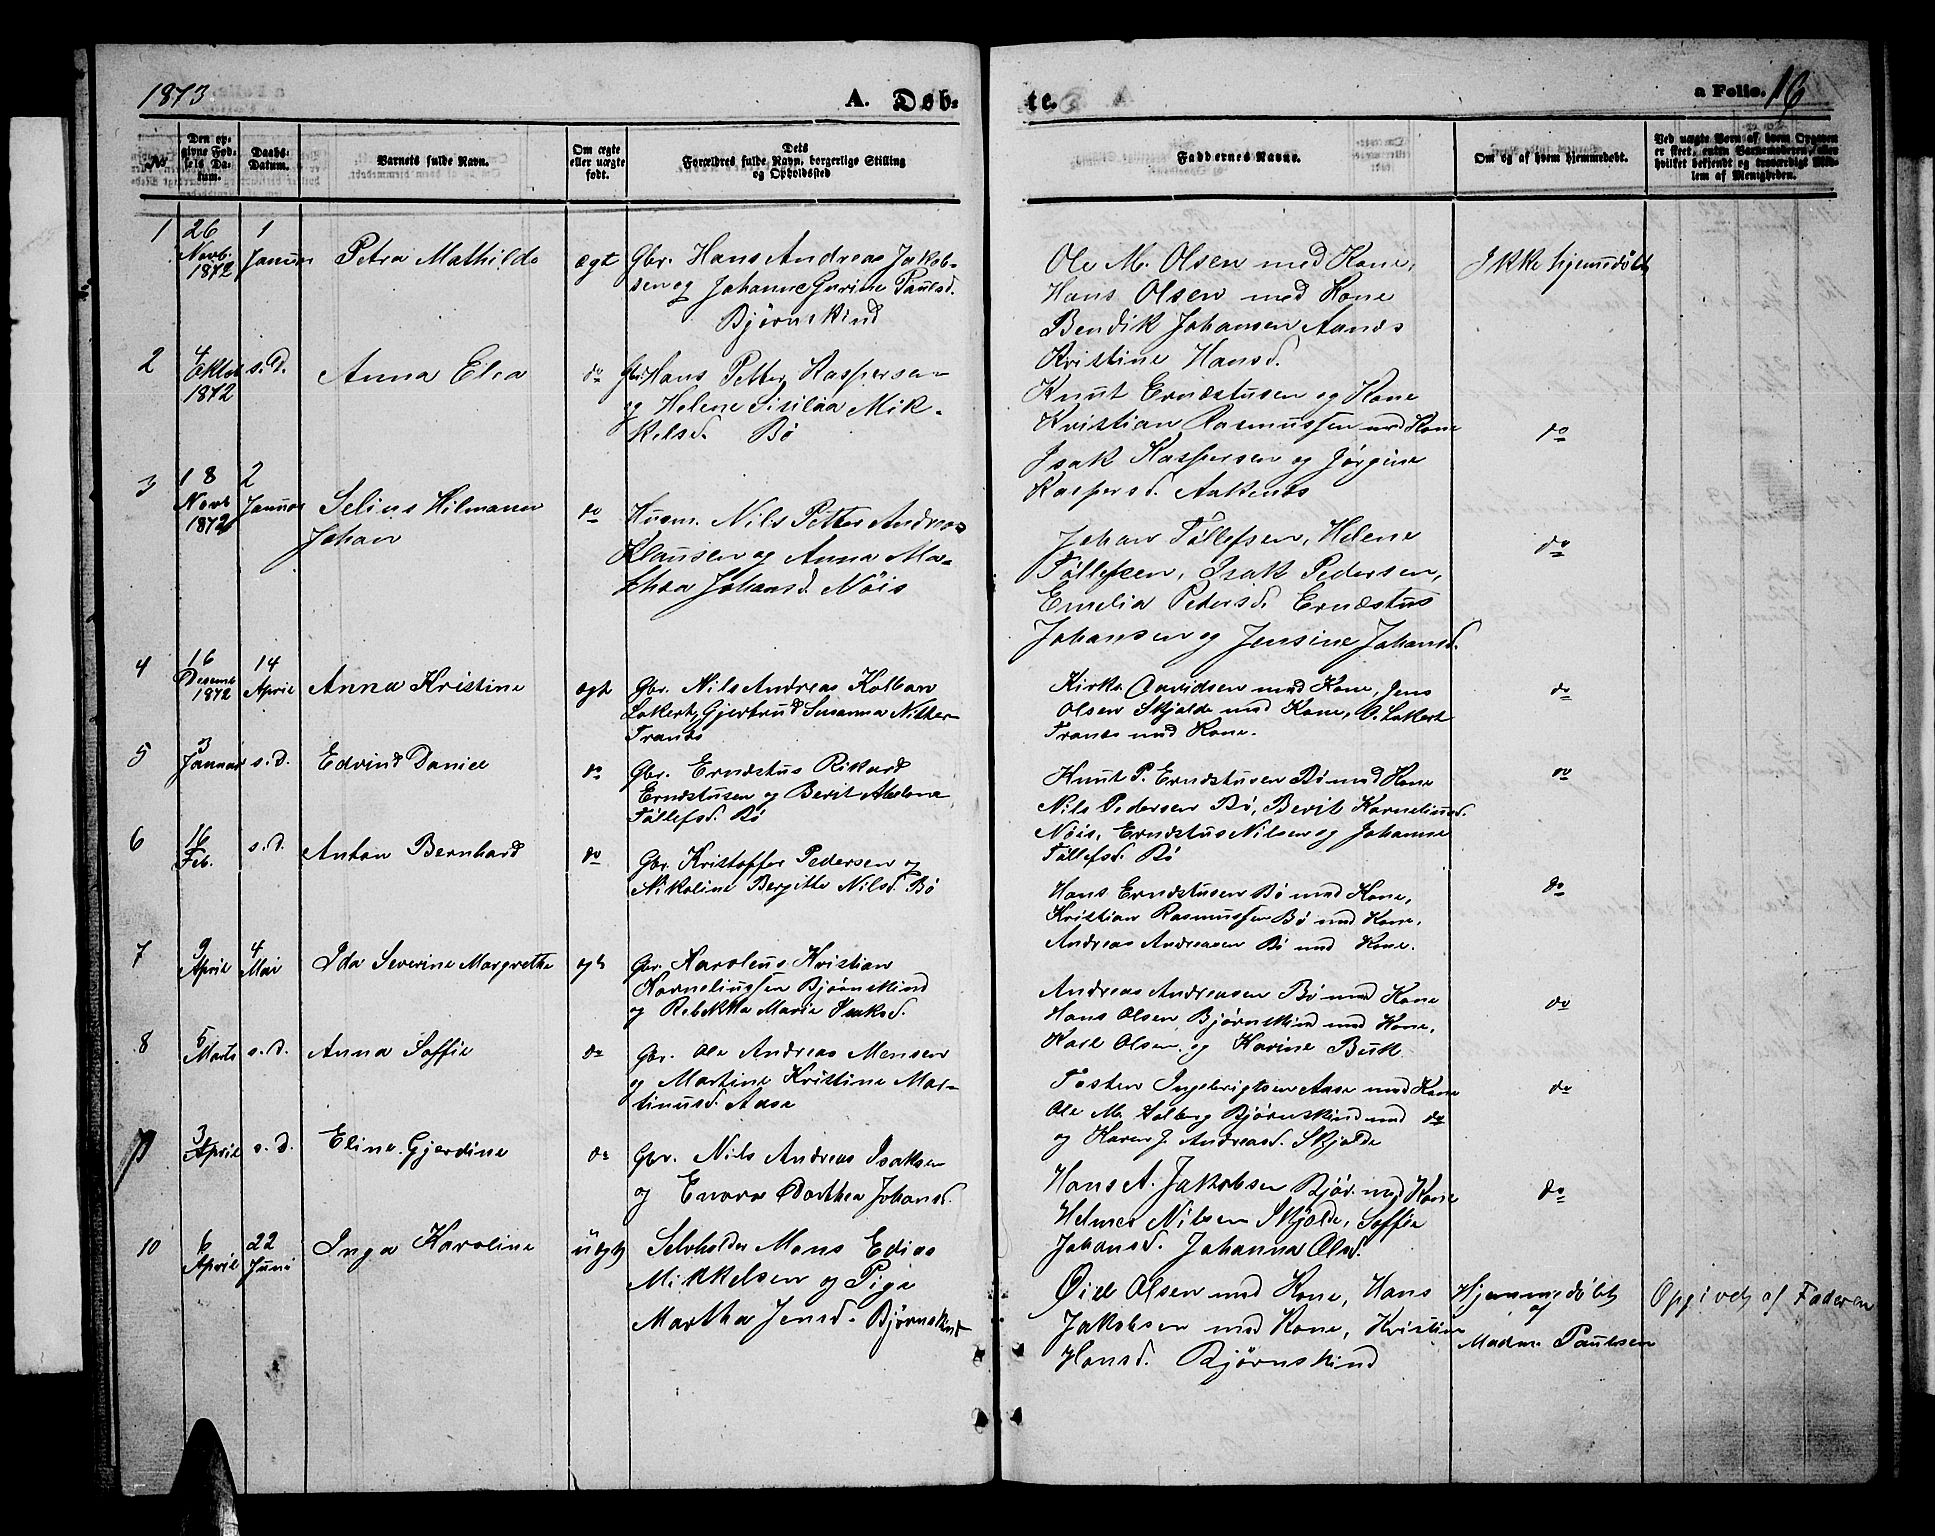 1873
A. Døb-
te.
a Folio. 16
No
Den op-
givne Fød-
sels Da-
tum.
Daabs-
Datum.
Barnets fulde Navn.
Om ægte
eller uægte
født.
Dets
Forældres fulde Navn, borgerlige Stilling
og Opholdssted
Faddernes Navne.
Om og af hvem hjemmedøbt.
Ved uægte Børn af hvem Opgaven
er skeet, enten Barnemoderen eller
hvilket bekjendt og troværdigt Med-
lem af Menigheden.
1
26
Novb.
1872
1
Januar
Petra Mathilde
ægt
Gbr. Hans Andreas Jakob-
sen og Johanne Gurine Paulsd.
Bjørnskind
Ole M. Olsen med Kone,
Hans Olsen med Kone
Bendik Johansen Aanes
Kristine Hansd.
Ikke hjemmedøbt
2
4
1872
s. D.
Anna Elea
do
Gbr. Hans Petter Kaspersen
og Helene Sisilia Mik-
kelsd. Bø
Knut Ernæstusen og Kone
Kristian Rasmussen med Kone
Isak Kaspersen og Jørgine
Kaspersd.
do
3
18
Novb
1872
2
Januar
Selius Hilmann
Johan
do
Husm. Nils Petter Andreas
Klausen og Anna Ma-
thea Johansd. Nöis
Johan Tøllefsen, Helene
Tøllefsen, Isak Pedersen,
Emelia Pedersd. Ernæstus
Johansen og Jensine Johansd.
do
4
16
Desemb
1872
14
April
Anna Kristine
ægt
Gbr. Nils Andreas Kolban
Lokert, Gjertrud Susanna Nilsd.
Tranes
Kirks. Davidsen med Kone, Jens
Olsen Skjolde med Kone, O. Lokert
Tranes med Kone.
do
5
3
Januar
s. d.
Edvind Daniel
do
Gbr. Ernæstus Rikard
Ernæstusen og Berit Abelone
Tøllefsd. Bø
Knut P. Ernæstusen Bø med Kone
Nils Pedersen Bø, Berit Korneliusd.
Nöis, Ernæstus Nilsen og Johanne
Tøllefsd. Bø
do
6
16
Feb.
s. d.
Anton Bernhard
do
Gbr. Kristoffer Pedersen og
Nikoline Bergitte Nilsd. Bø
Hans Ernæstusen Bø med Kone,
Kristian Rasmussen Bø med Kone,
Andreas Andreasen Bø med Kone.
do
7
9
April
4
Mai
Ida Severine Margrethe
ægt
Gbr. Karoleus Kristian
Korneliussen Bjørnskind
og Rebekka Marie Isaksd.
Andreas Andreasen Bø med Kone
Hans Olsen Bjørnskind med Kone,
Karl Olsen og Karine Buk.
do
8
5
Marts
s. d.
Anna Soffie
do
Gbr. Ole Andreas Monsen
og Martine Kristine Mar-
tinusd. Aase
Tosten Ingebrigtsen Aase med Kone
Ole M. Solberg Bjørnskind med do
og Karen J. Andreasd. Skjolde
do
9
3
April
s. d.
Eline Gjerdine
do
Gbr. Nils Andreas Isaksen
og Enora Dorthea Johansd.
Hans A. Jakobsen Bjør. med Kone
Helmer Nilsen Skjolde, Soffie
Johansd. Johanna Olsd.
do
10
6
April
22
Juni
Inga Karoline
uægt
Selvholder Mons Edias
Mikkelsen og Pige
Martha Jensd. Bjørnskind
Øiel Olsen med Kone, Hans
Jakobsen med Kone, Kristine
Hansd. Bjørnskind
Hjemmedøbt
af
Madm. Paulsen
Opgivet af Faderen